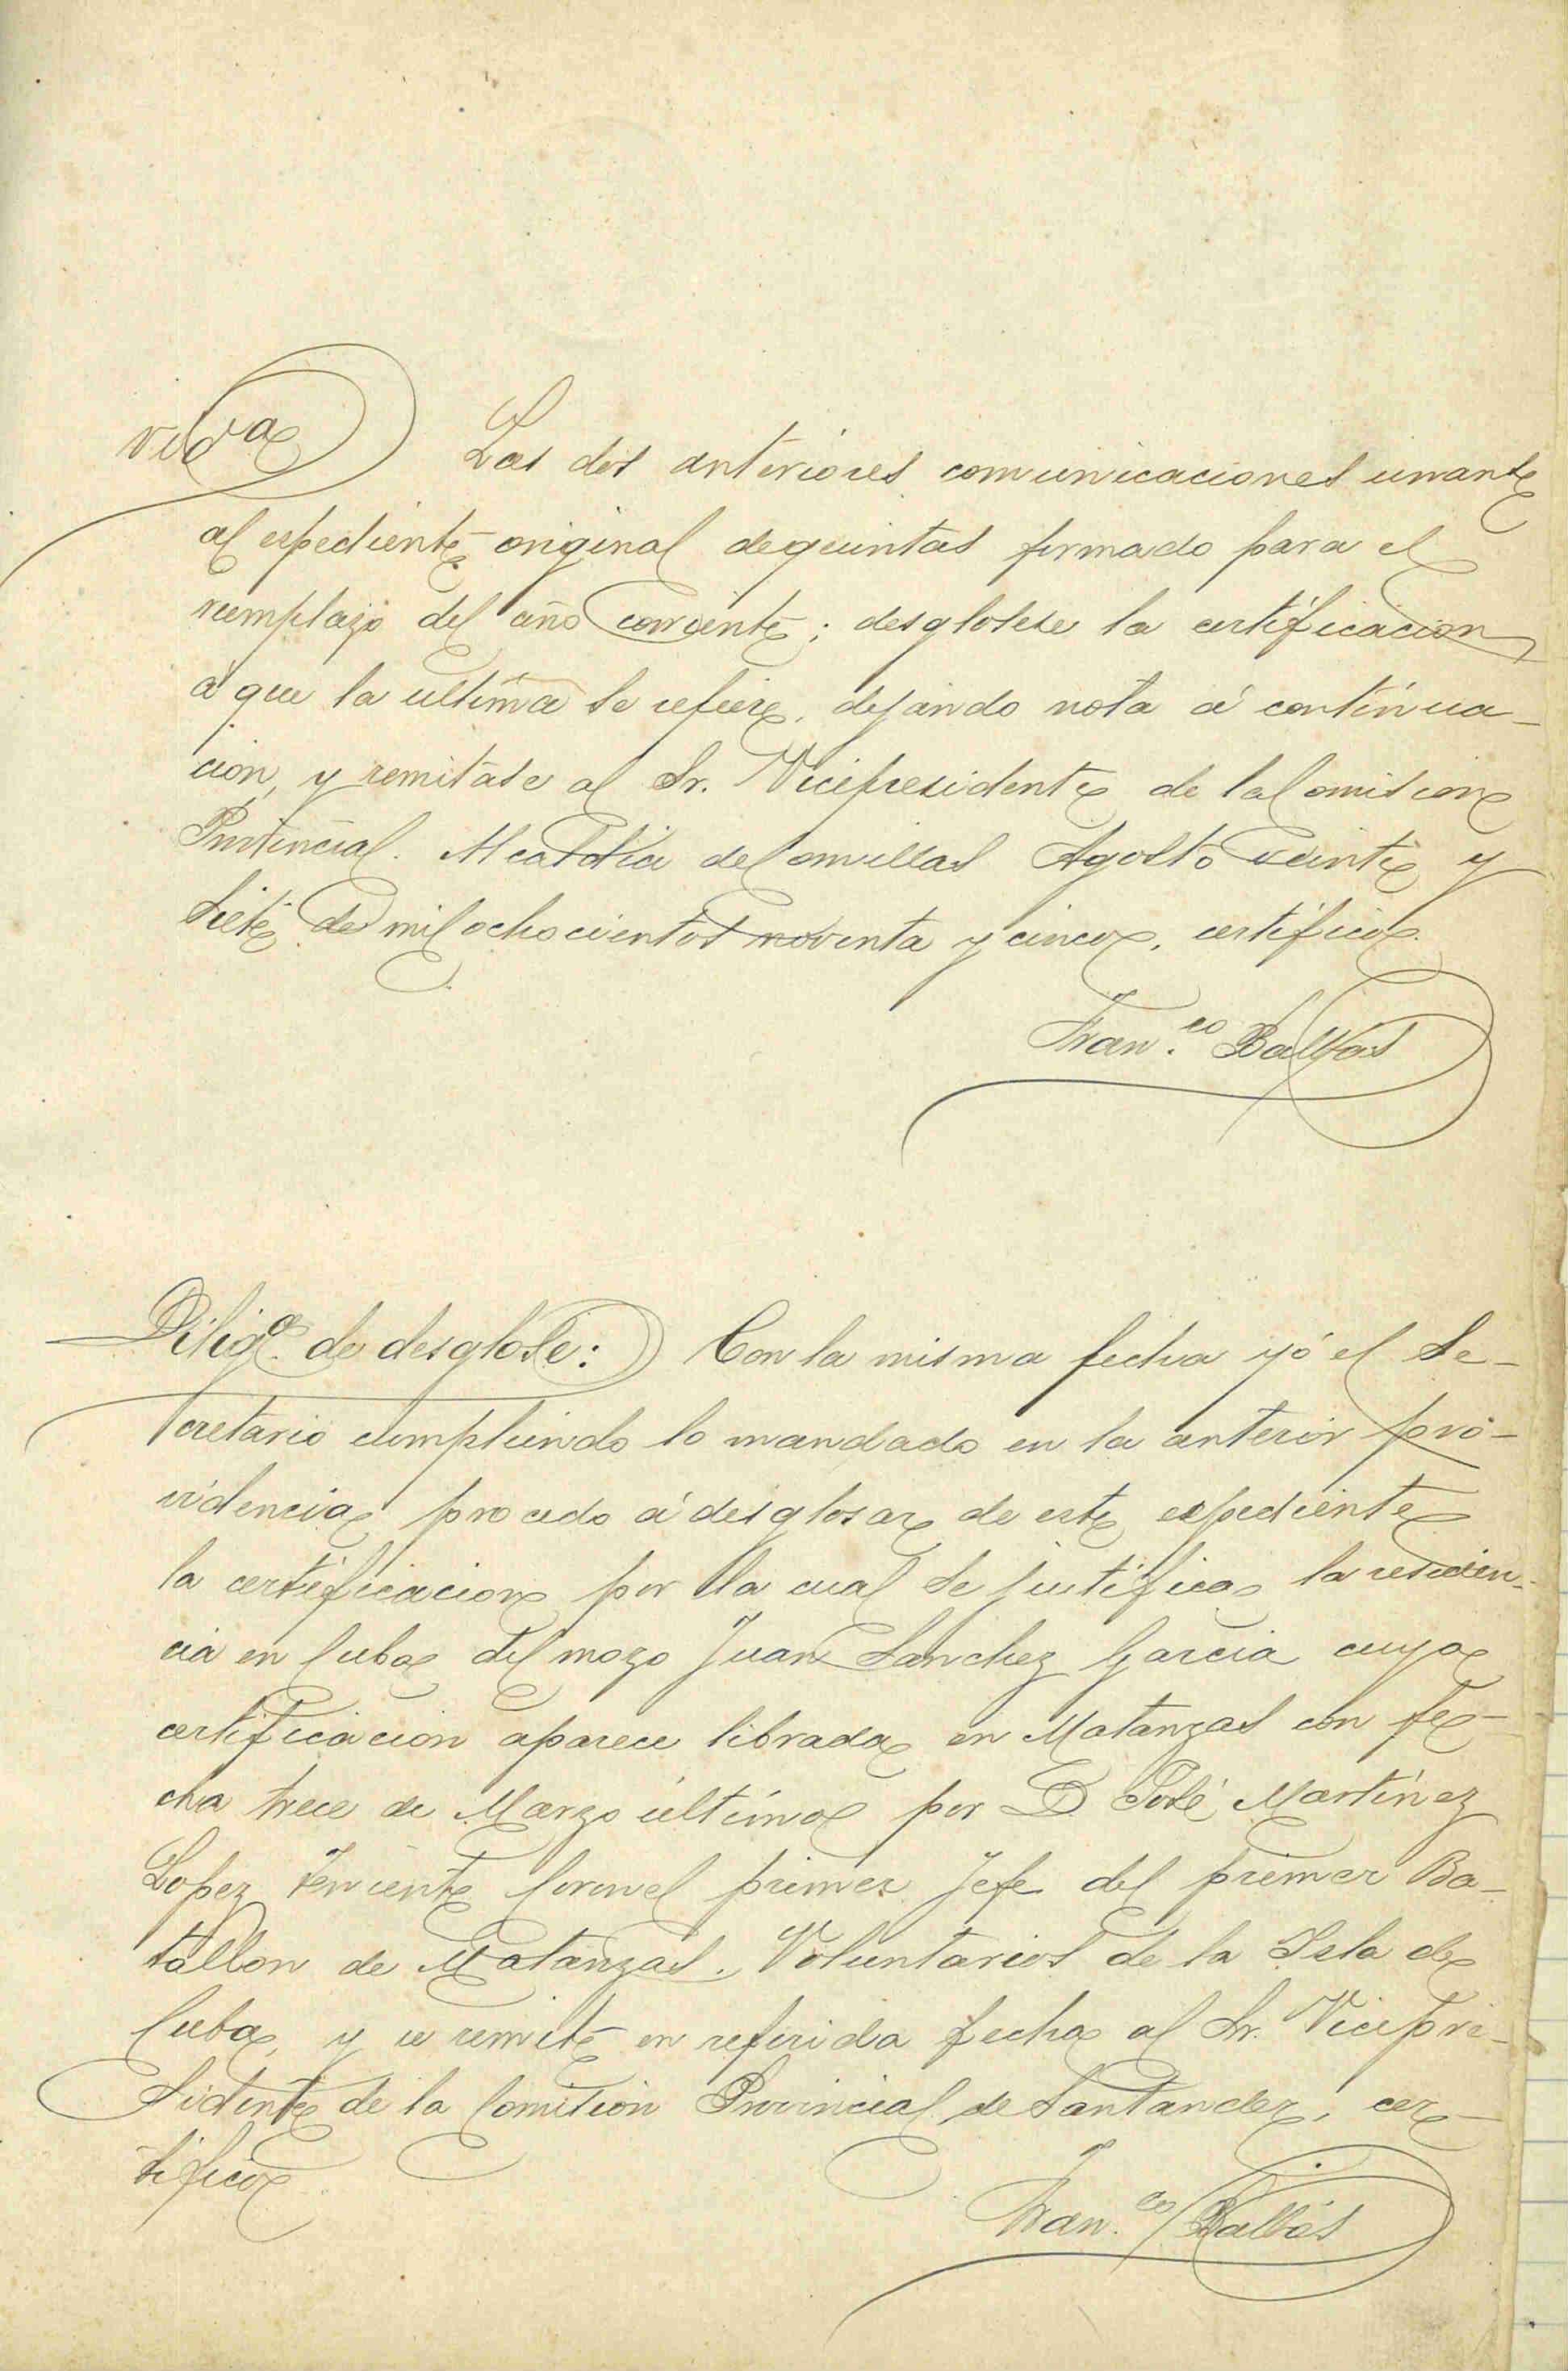 Las dos anteriores comunicaciones unanse
al espediente original de quintas formado para el
reemplazo del año corriente; desglosese la certificacion
á que la ultima se refiere, dejando nota á continua-
cion, y remitase al Sr. Vicepresidente de la Comision
Provincial. Alcaldia de Comillas Agosto veinte y
siete de mil ochocientos noventa y cinco, certifico.
Fran.co Balbás
Dilig.a de desglose: Con la misma fecha yó el Se-
cretario cumpliendo lo mandado en la anterior pro-
videncia procedo á desglosar de este espediente
la certificacion por la cual se justifica la residen-
cia en Cuba del mozo Juan Sanchez Garcia cuya
certificacion aparece librada en Matanzas con fe-
cha trece de Marzo último por D. José Martinez
Lopez Teniente Coronel primer Jefe del primer Ba-
tallon de Matanzas. Voluntarios de la Isla de
Cuba, y se remite en referida fecha al Sr. Vicepre-
sidente de la Comision Provincial de Santander, cer-
tifico
Fran.co Balbás